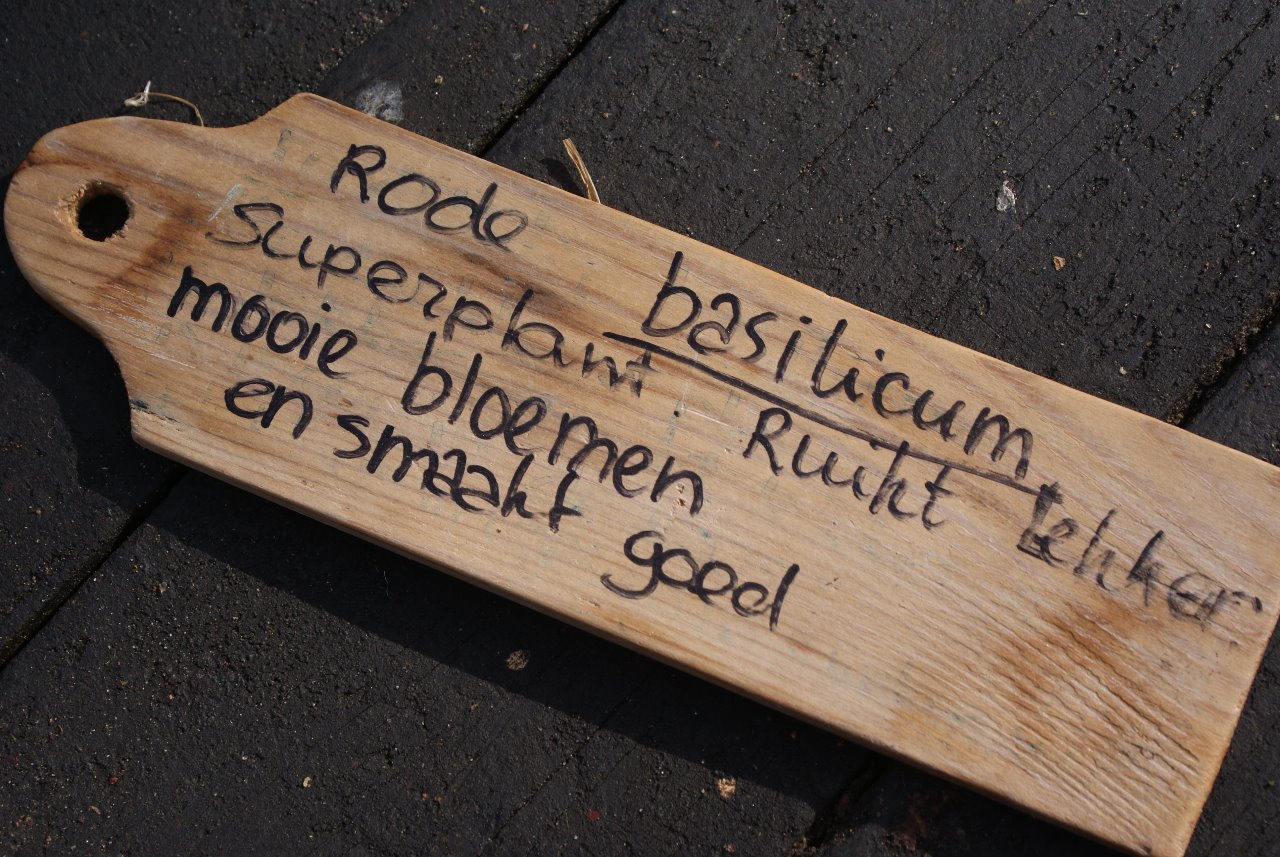 Rode basilicum
Superplant. Ruikt lekker.
mooie bloemen
en smaakt goed